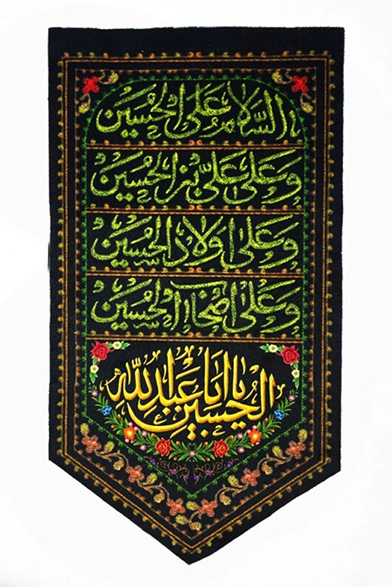 السلام علی الحسین
وعلی علی بن الحسین
وعلی اولاد الحسین
وعلی اصحاب الحسین
یا اباعبدلله الحسین